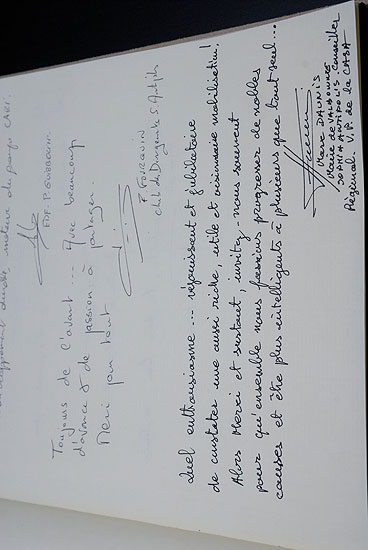 développement durable, moteur du pays
EDF. P.
Toujours de l'avant ... Avec beaucoup
d'avance & de passion à partager.
Merci pour tout
F FOURQUIN
Quel enthousiasme ... réjouissant et jubilatoire
de constater une aussi riche, utile et visionnaire mobilisation!
Alors Merci et surtout, invitez-nous souvent
pour qu'ensemble nous fassions progresser de nobles
causes et être plus intelligents à plusieurs que tout seul...
Marc DAUNIS
Maire de VALBONNE
SOPHIA ANTIPOLIS. Conseiller
Régional. V.P. de la CASA